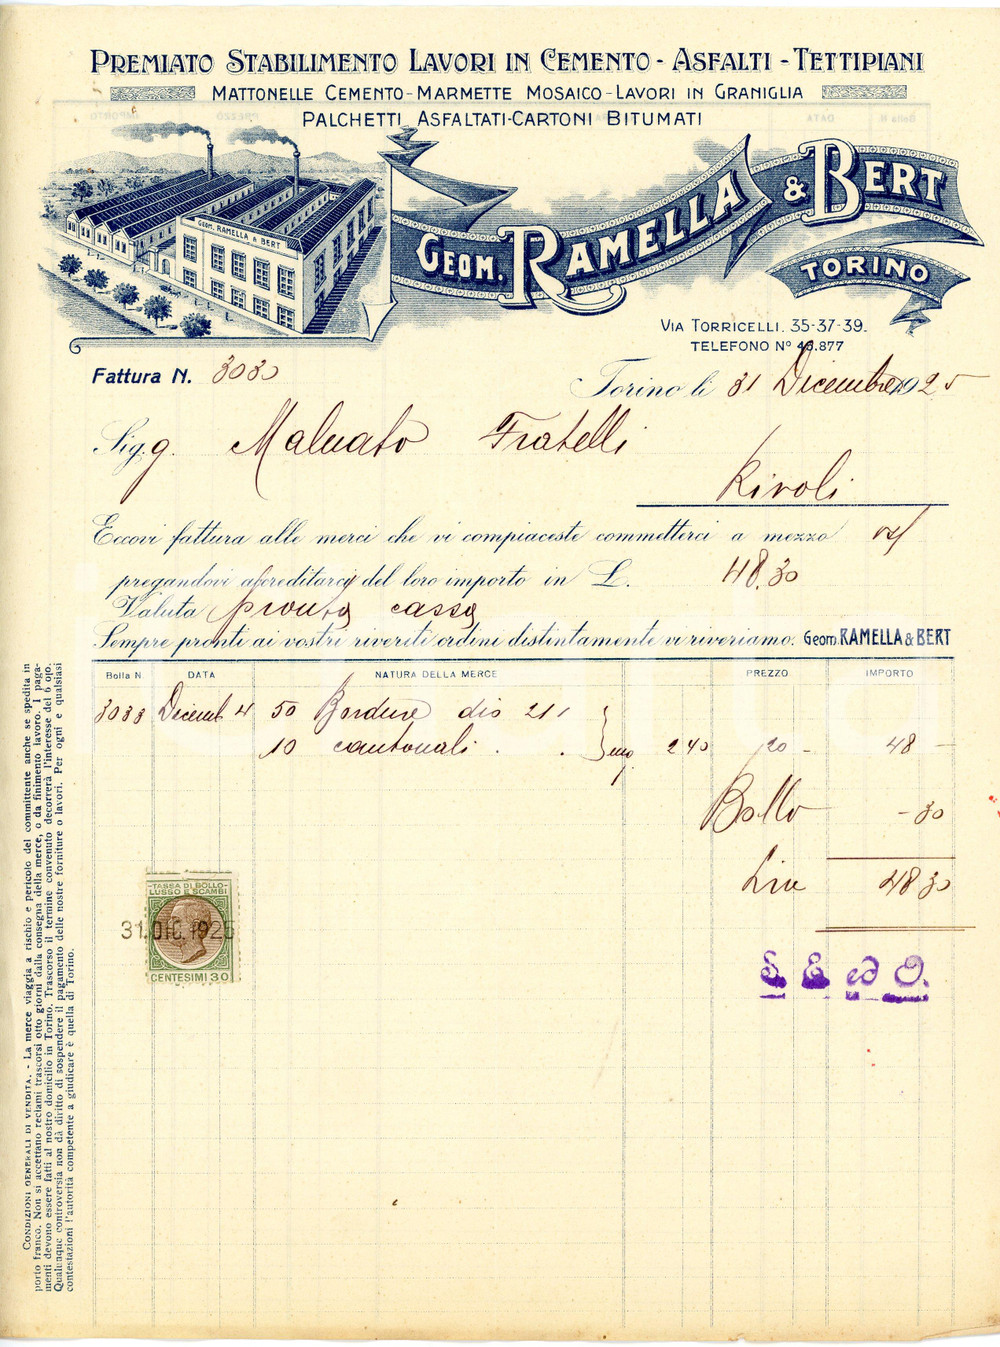 PREMIATO STABILIMENTO LAVORI IN CEMENTO - ASFALTI - TETTIPIANI
MATTONELLE CEMENTO - MARMETTE MOSAICO - LAVORI IN GRANIGLIA
PALCHETTI ASFALTATI - CARTONI BITUMATI
GEOM. RAMELLA & BERT
GEOM. RAMELLA & BERT
TORINO
VIA TORRICELLI. 35-37-39.
TELEFONO Nº 49.877
Fattura N. 3030
Torino li 31 Dicembre 1925
Sig.g. Malvato Fratelli
Rivoli
Eccovi fattura alle merci che vi compiaceste commetterci a mezzo
pregandovi accreditarci del loro importo in L. 48,30
Valuta pronta cassa
Sempre pronti ai vostri riveriti ordini distintamente vi riveriamo. Geom. RAMELLA & BERT
Bolla N. DATA NATURA DELLA MERCE PREZZO IMPORTO
3033 Decemb 4 50 Bordure dis 211
10 cantonali . . mq 2 40 20 - 48 -
Bollo - 30
Lire 48 30
TASSA DI BOLLO
LUSSO E SCAMBI
31.DIC.1925
CENTESIMI 30
S. & ed O.
CONDIZIONI GENERALI DI VENDITA. - La merce viaggia a rischio e pericolo del committente anche se spedita in
porto franco. Non si accettano reclami trascorsi otto giorni dalla consegna della merce, o da finimento lavoro. I paga-
menti devono essere fatti al nostro domicilio in Torino. Trascorso il termine convenuto decorrerà l'interesse del 6 opo.
Qualunque controversia non dà diritto di sospendere il pagamento delle nostre forniture o lavori. Per ogni e qualsiasi
contestazioni l'autorità competente a giudicare è quella di Torino.